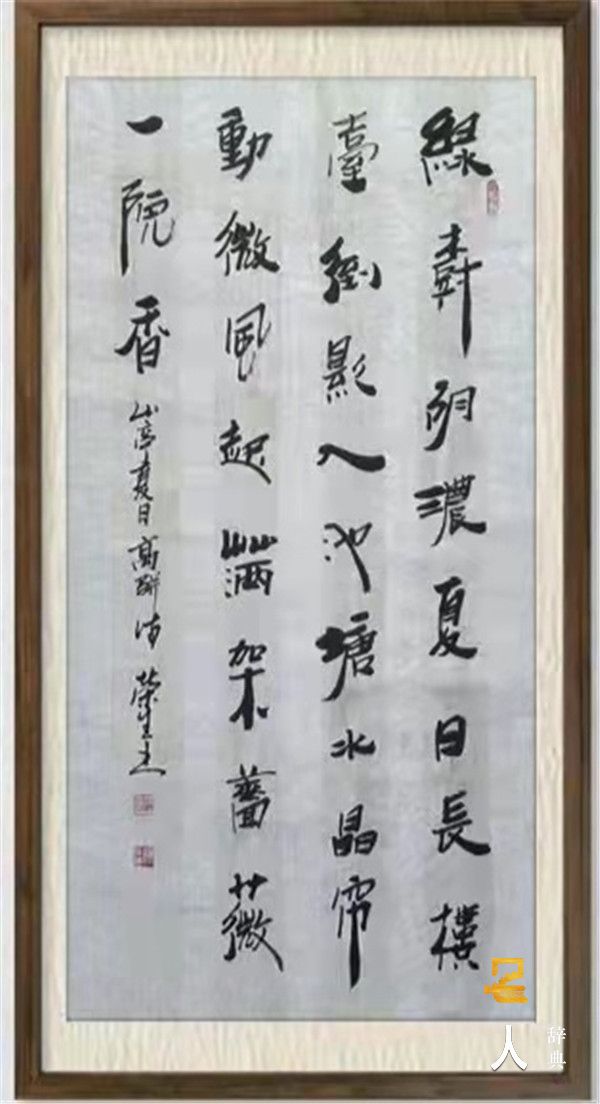 綠樹陰濃夏日長樓
臺倒影入池塘水晶帘
動微風起滿架薔薇
一院香 山亭夏日高駢诗
人
辞典